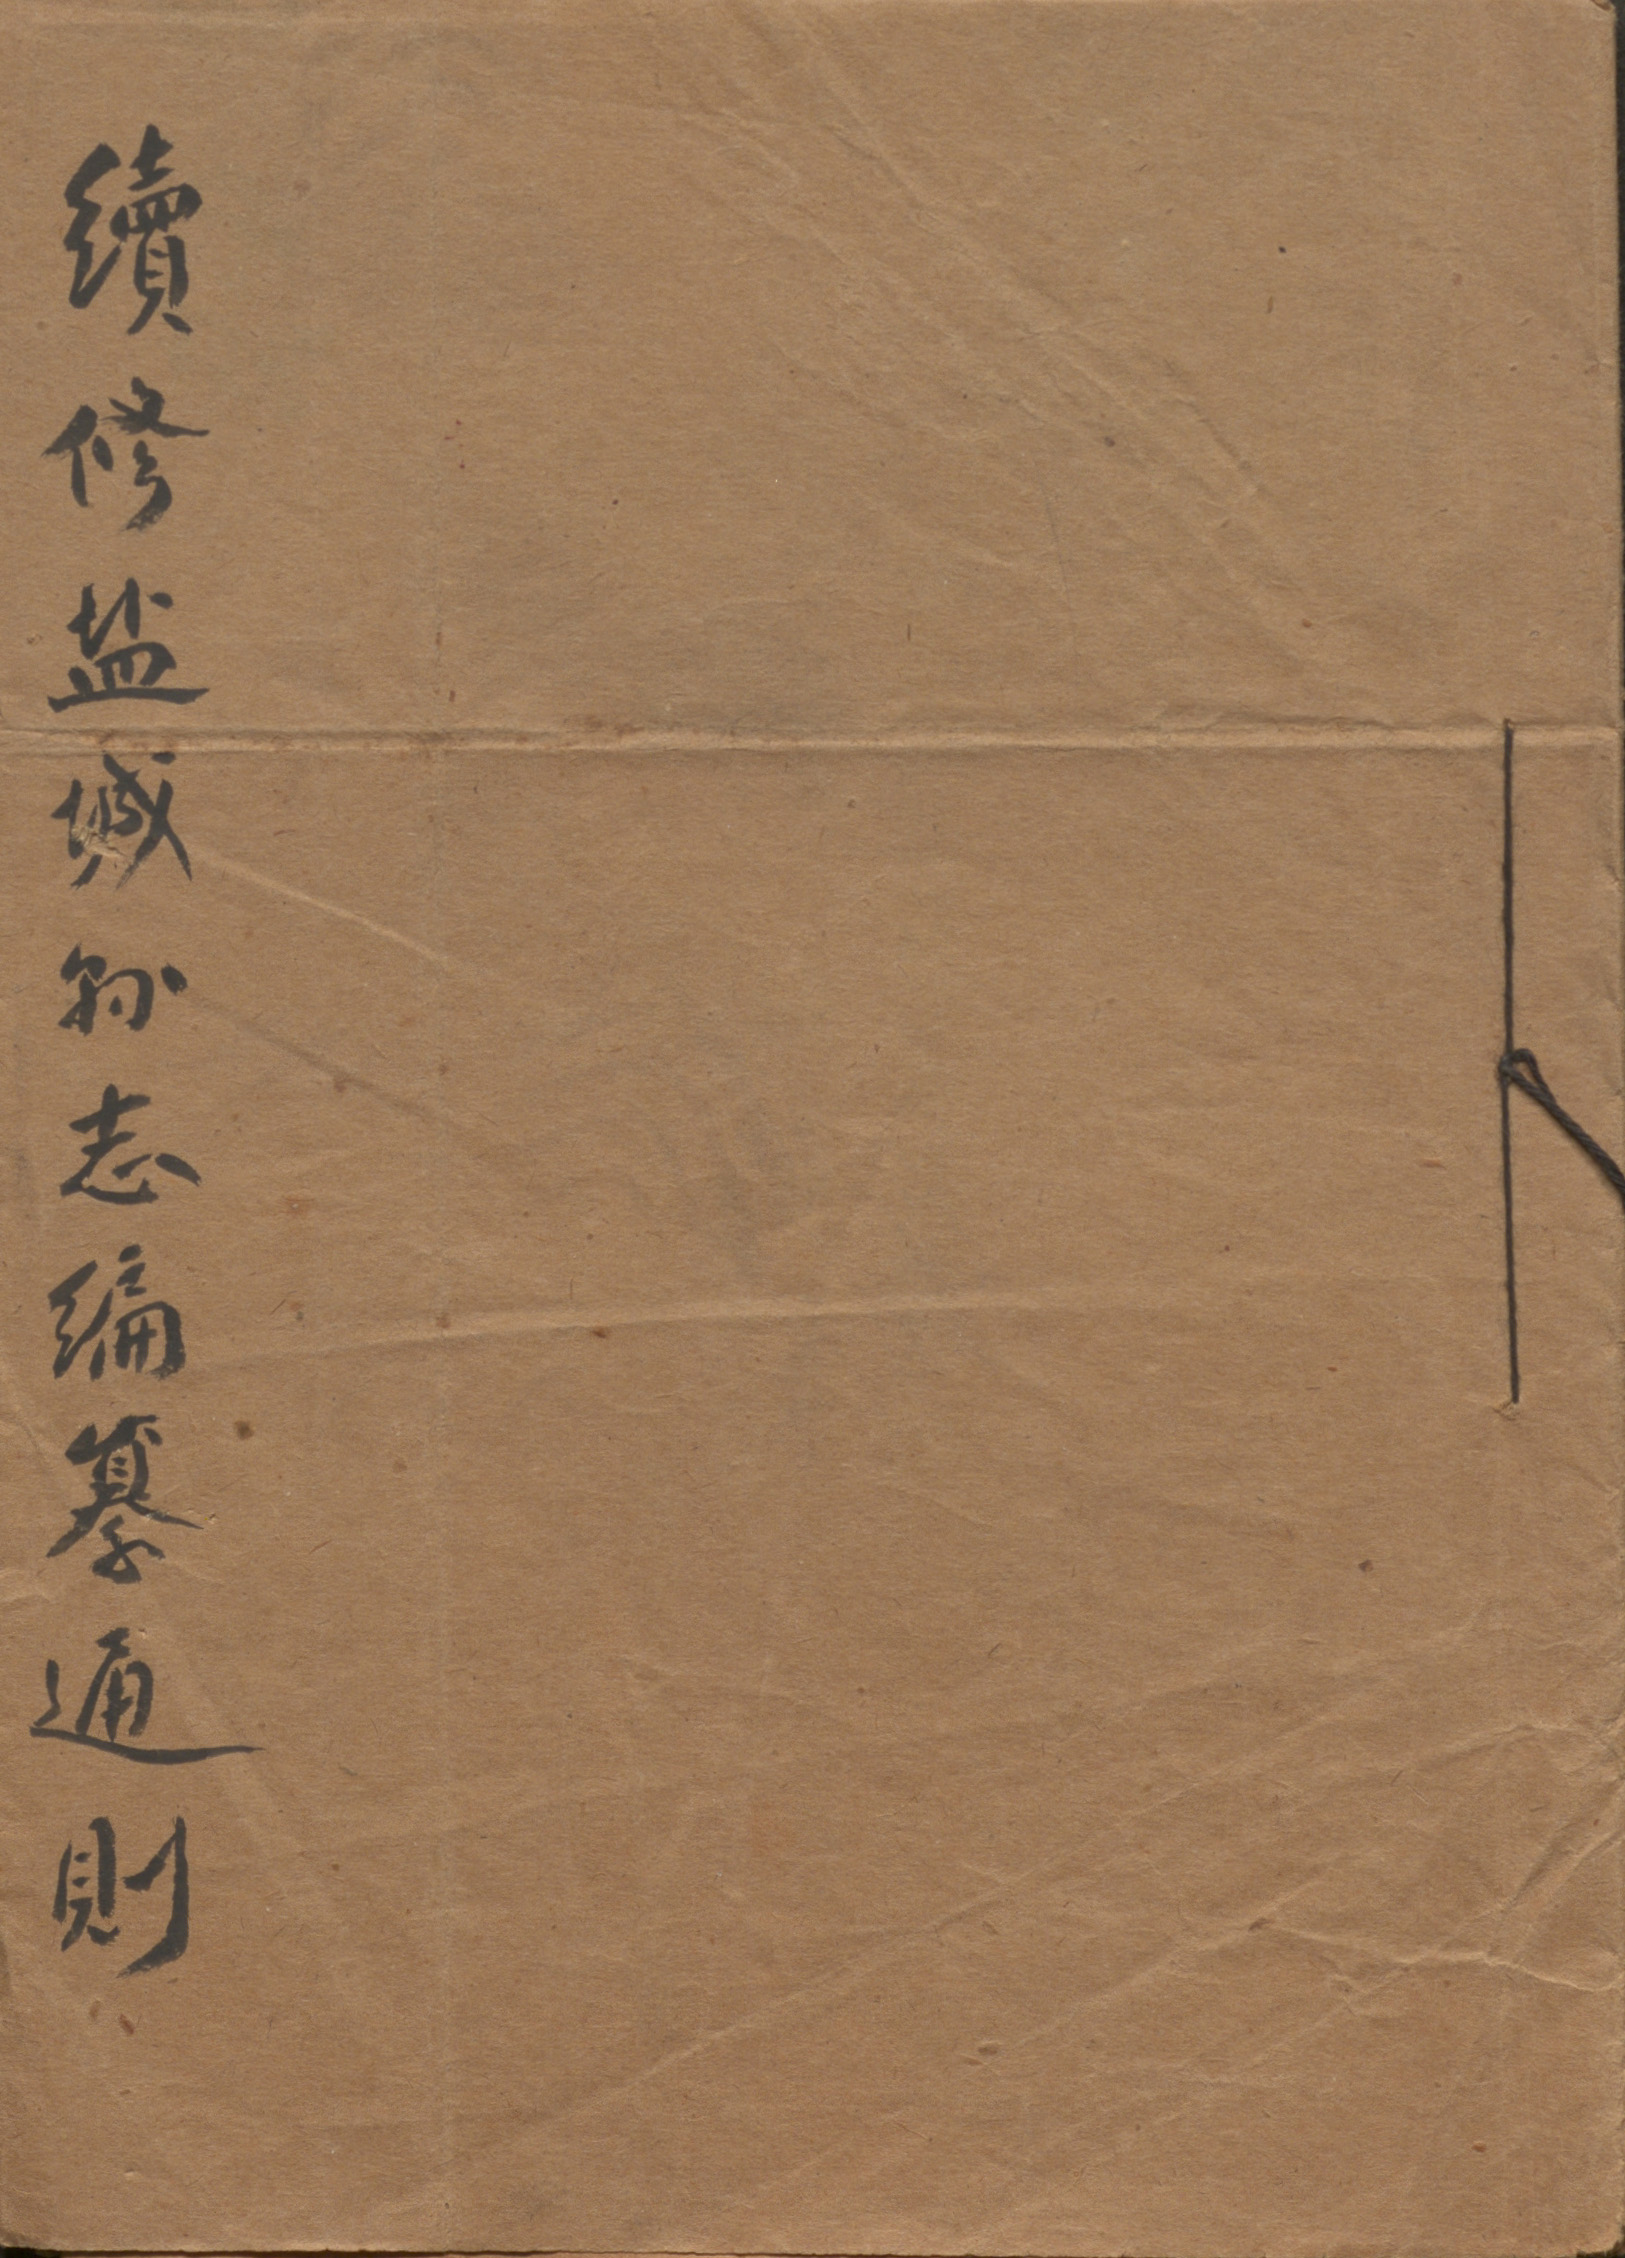 續修盐城縣志編纂通則